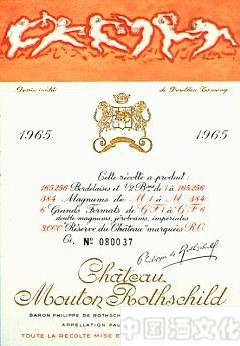 Dessin inédit de Dorothea Tanning
1965 1965
Cette récolte a produit:
165256 Bordelaises et ½ Bses de 1 à 165256
384 Magnums de M 1 à M 384
6 Grands Formats de G F 1 à G F 6
double magnums, jéroboams, impériales
3000 "Réserve du Château" marquées R.C.
Ci, Nº 080037
Philippe de Rothschild
Château
Mouton Rothschild
BARON PHILIPPE DE ROTHSCH
APPELLATION PAU
TOUTE LA RÉCOLTE MISE E
中国酒文化